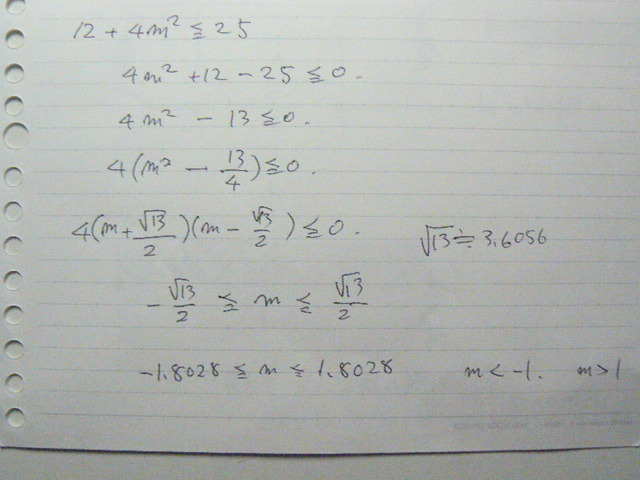 12 + 4m² ≦ 25
4m² + 12 − 25 ≦ 0.
4m² − 13 ≦ 0.
4(m² − 13/4) ≦ 0.
4(m + √13/2)(m − √13/2) ≦ 0.
√13 ≒ 3.6056
−√13/2 ≦ m ≦ √13/2
−1.8028 ≦ m ≦ 1.8028
m < −1. m > 1